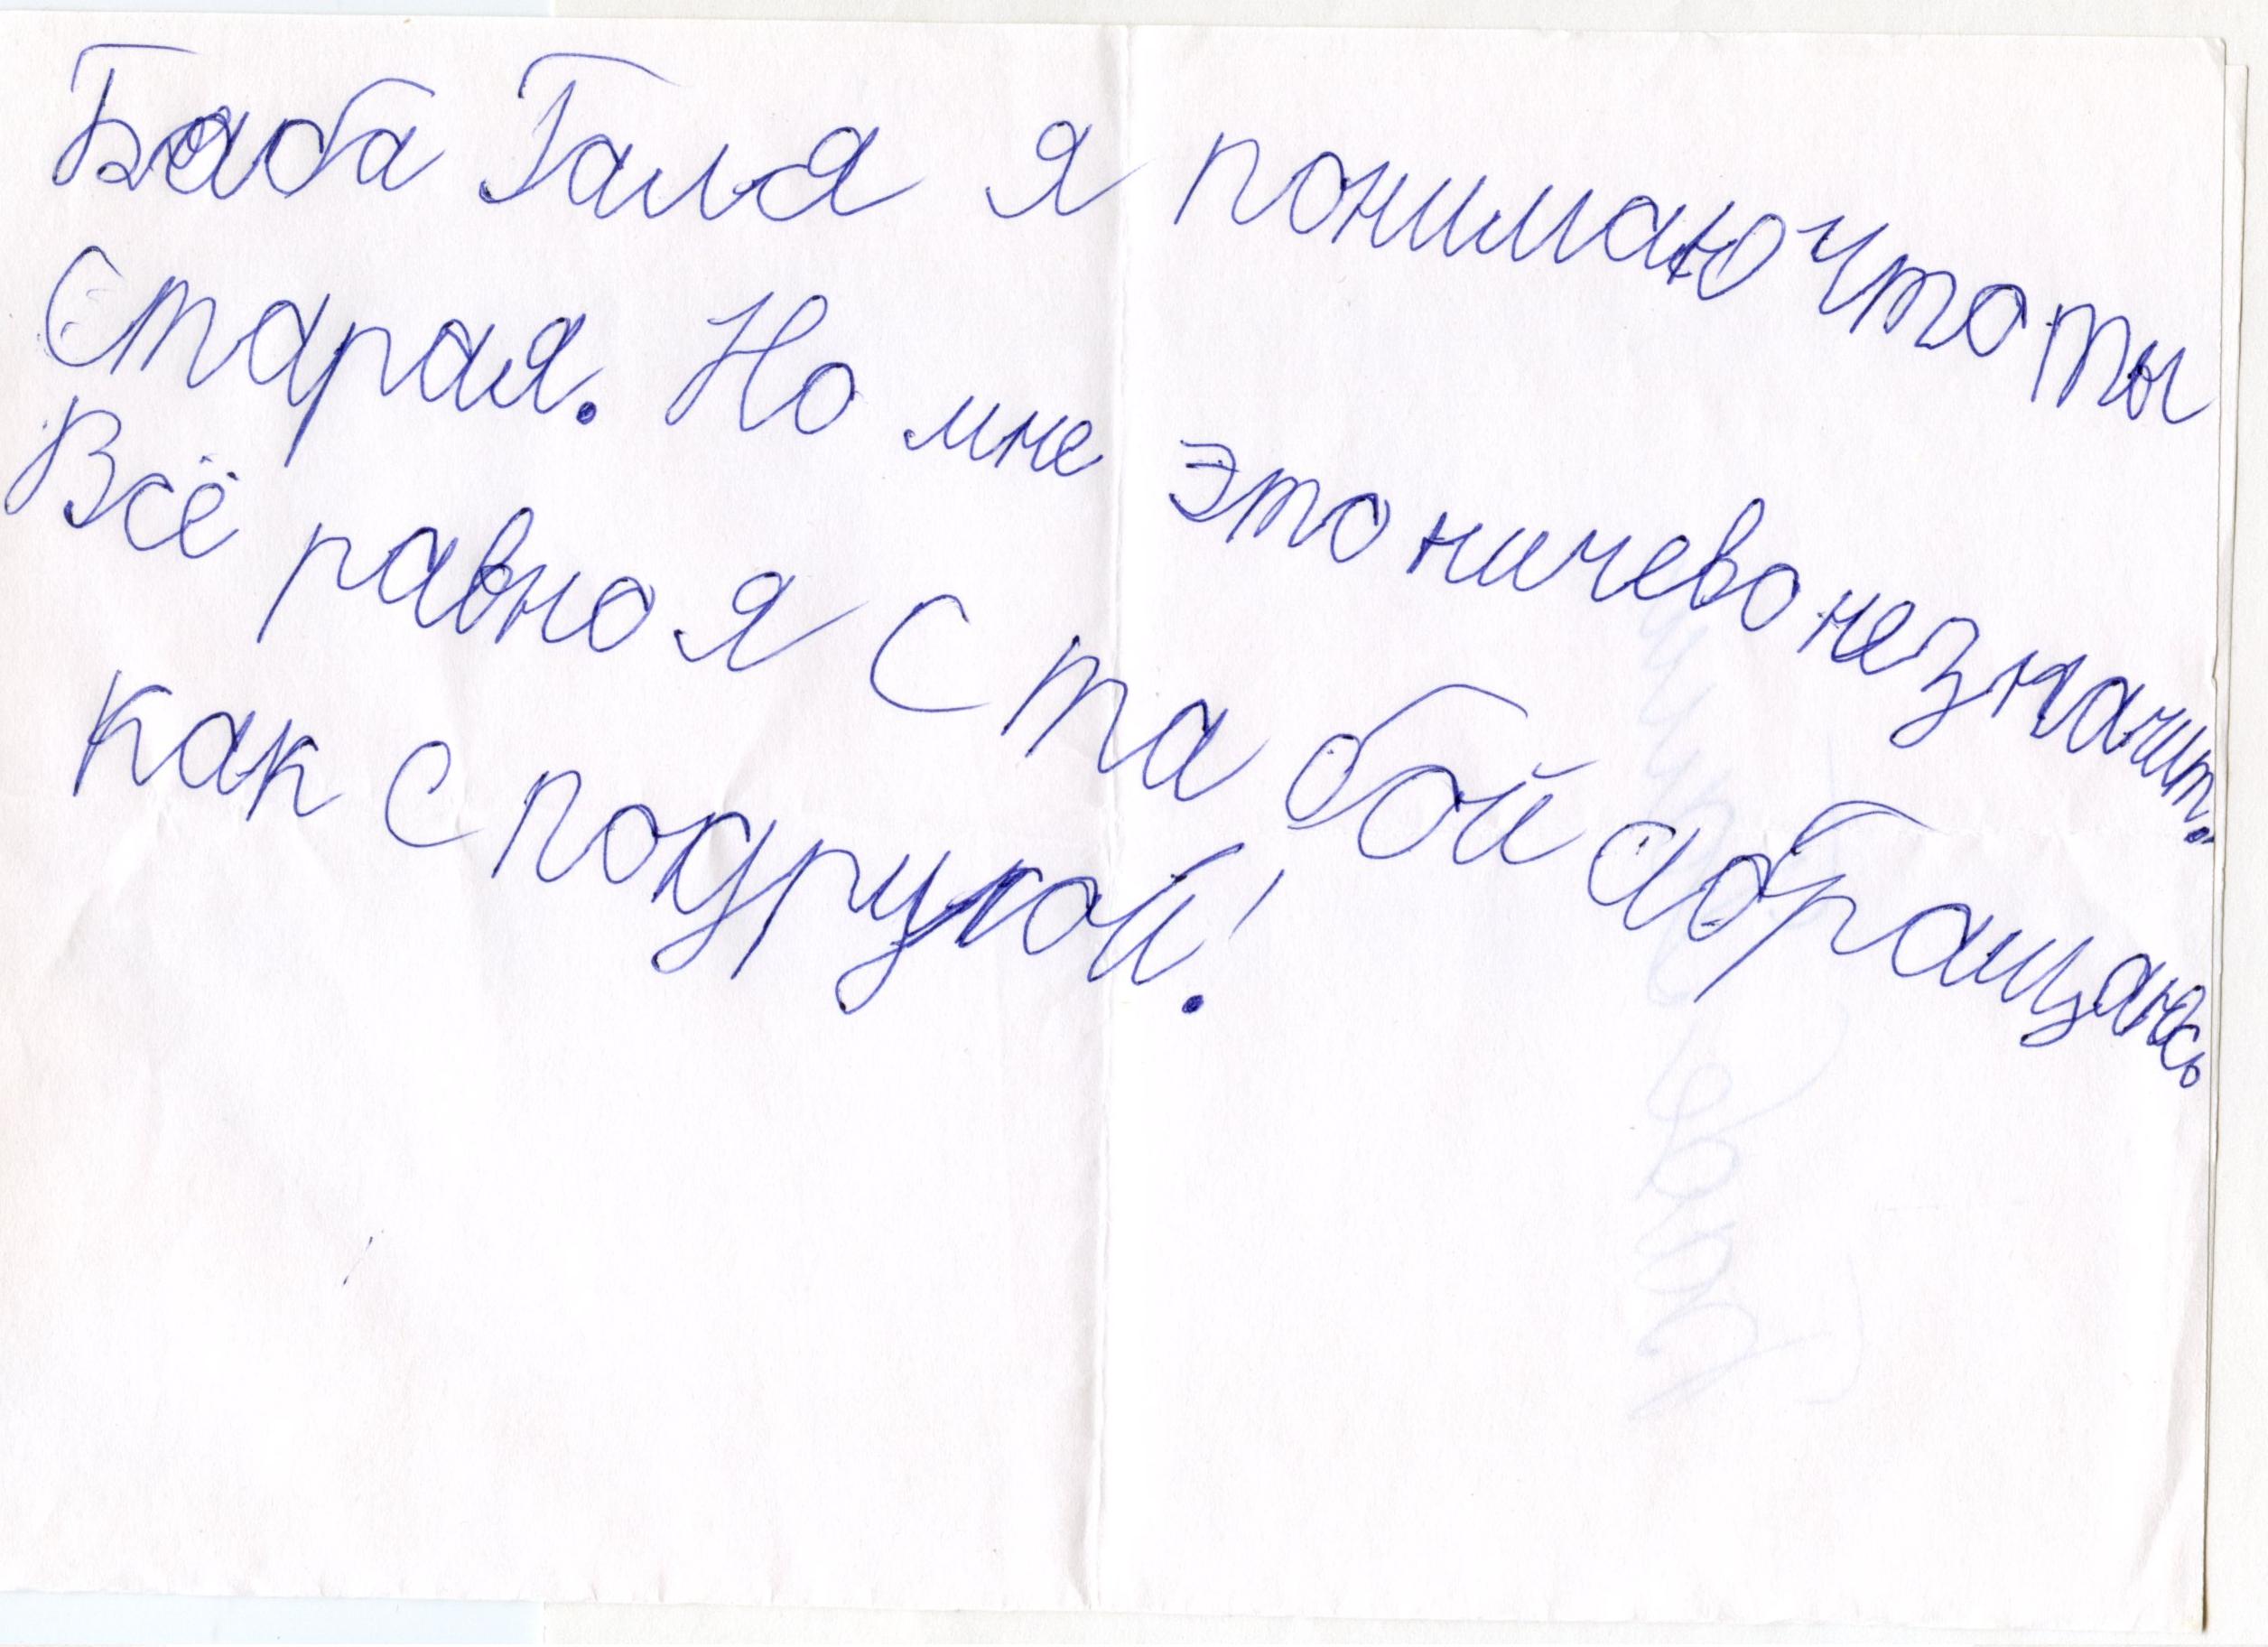 Баба Галя я понимаю что ты
Старая. Но мне это ничево незначит.
Всё равно я С та бой абращаюсь
как с подругой!